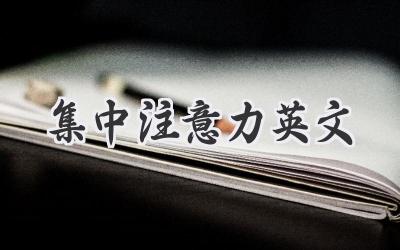 集中注意力英文